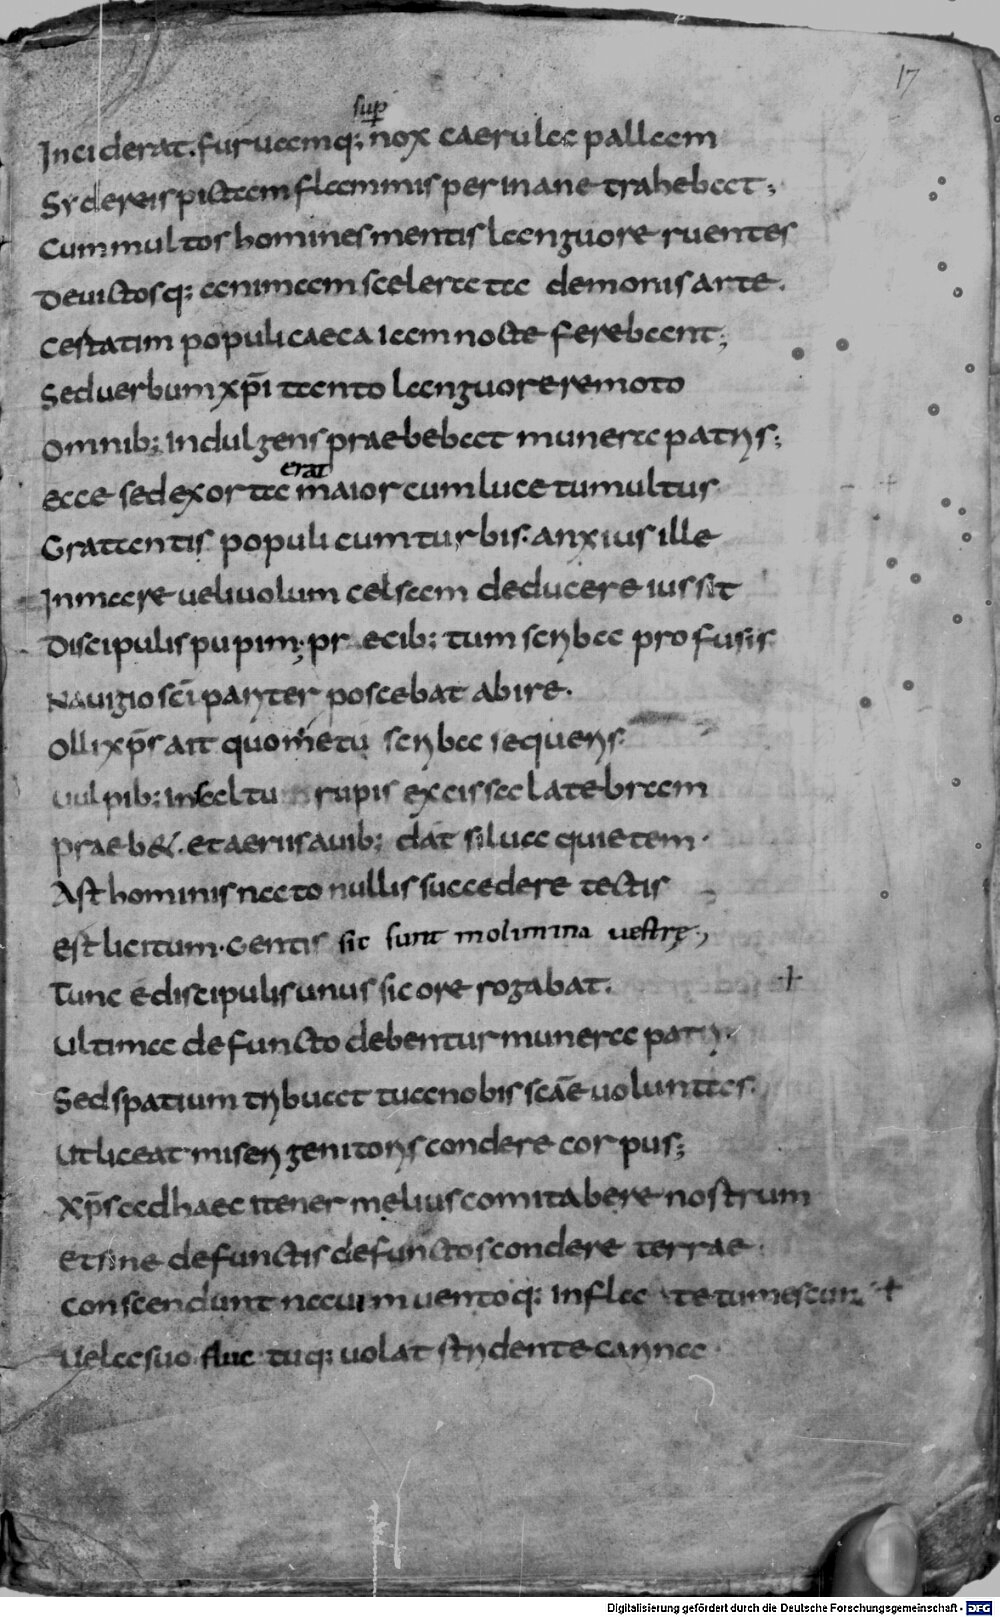 17
sup
Inciderat. furuamq; nox caerulea pallam
Sydereis pictam flammis per inane trahebat;
Cum multos homines mentis languore ruentes
Deuictosq; animam scelerata demonis arte.
Certatim populi caeca iam nocte ferebant;
Sed uerbum xp̄i tanto languore remoto
Omnib; indulgens praebebat munera patris;
erat
ecce sed exorta maior cum luce tumultus
Gratantis populi cum turbis. anxius ille
In mare ueliuolum celsam deducere iussit
Discipulis pupim; precib; tum scriba profusis
Nauigio sc̄i pariter poscebat abire.
Olli xp̄s ait quo me tu scriba sequeris
Uulpib; in saltu rupis excissa latebram
praeb&. et aeriis auib; dat silua quietem.
Ast hominis nato nullis succedere tectis
est licitum. Gentis sic sunt molimina uestrę;
Tunc e discipulis unus sic ore rogabat. +
Ultima defuncto debentur munera patri.
Sed spatium tribuat tua nobis scāe uoluntas.
Ut liceat miseri genitoris condere corpus;
Xp̄s ad haec iter melius comitabere nostrum
et sine defunctis defunctos condere terrae.
Conscendunt nauim uentoq; inflata tumescunt +
Uela suo fluctuq; uolat stridente carina.
Digitalisierung gefördert durch die Deutsche Forschungsgemeinschaft - DFG